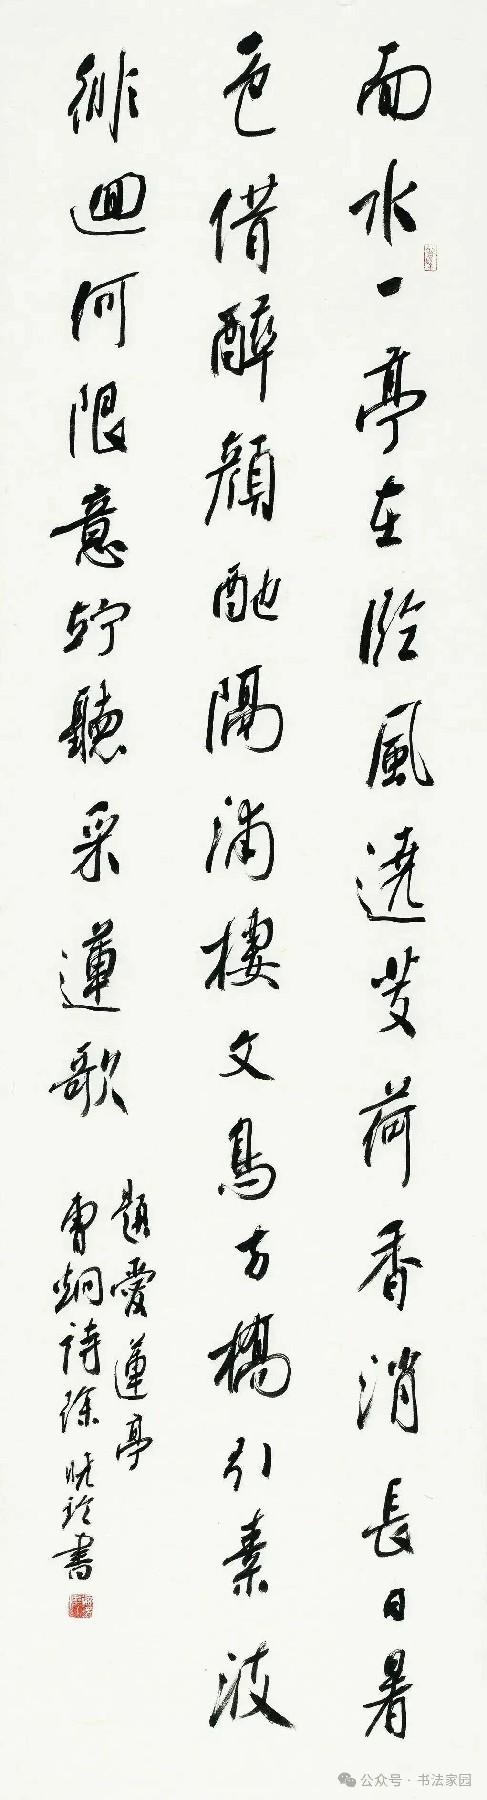 面水一亭在臨風遶芰荷香消長日暑
色借醉顏酡隔浦棲文鳥方橋引素波
徘迴何限意竚聽采蓮歌
題愛蓮亭
曹炯詩徐曉玲書
公众号 · 书法家园